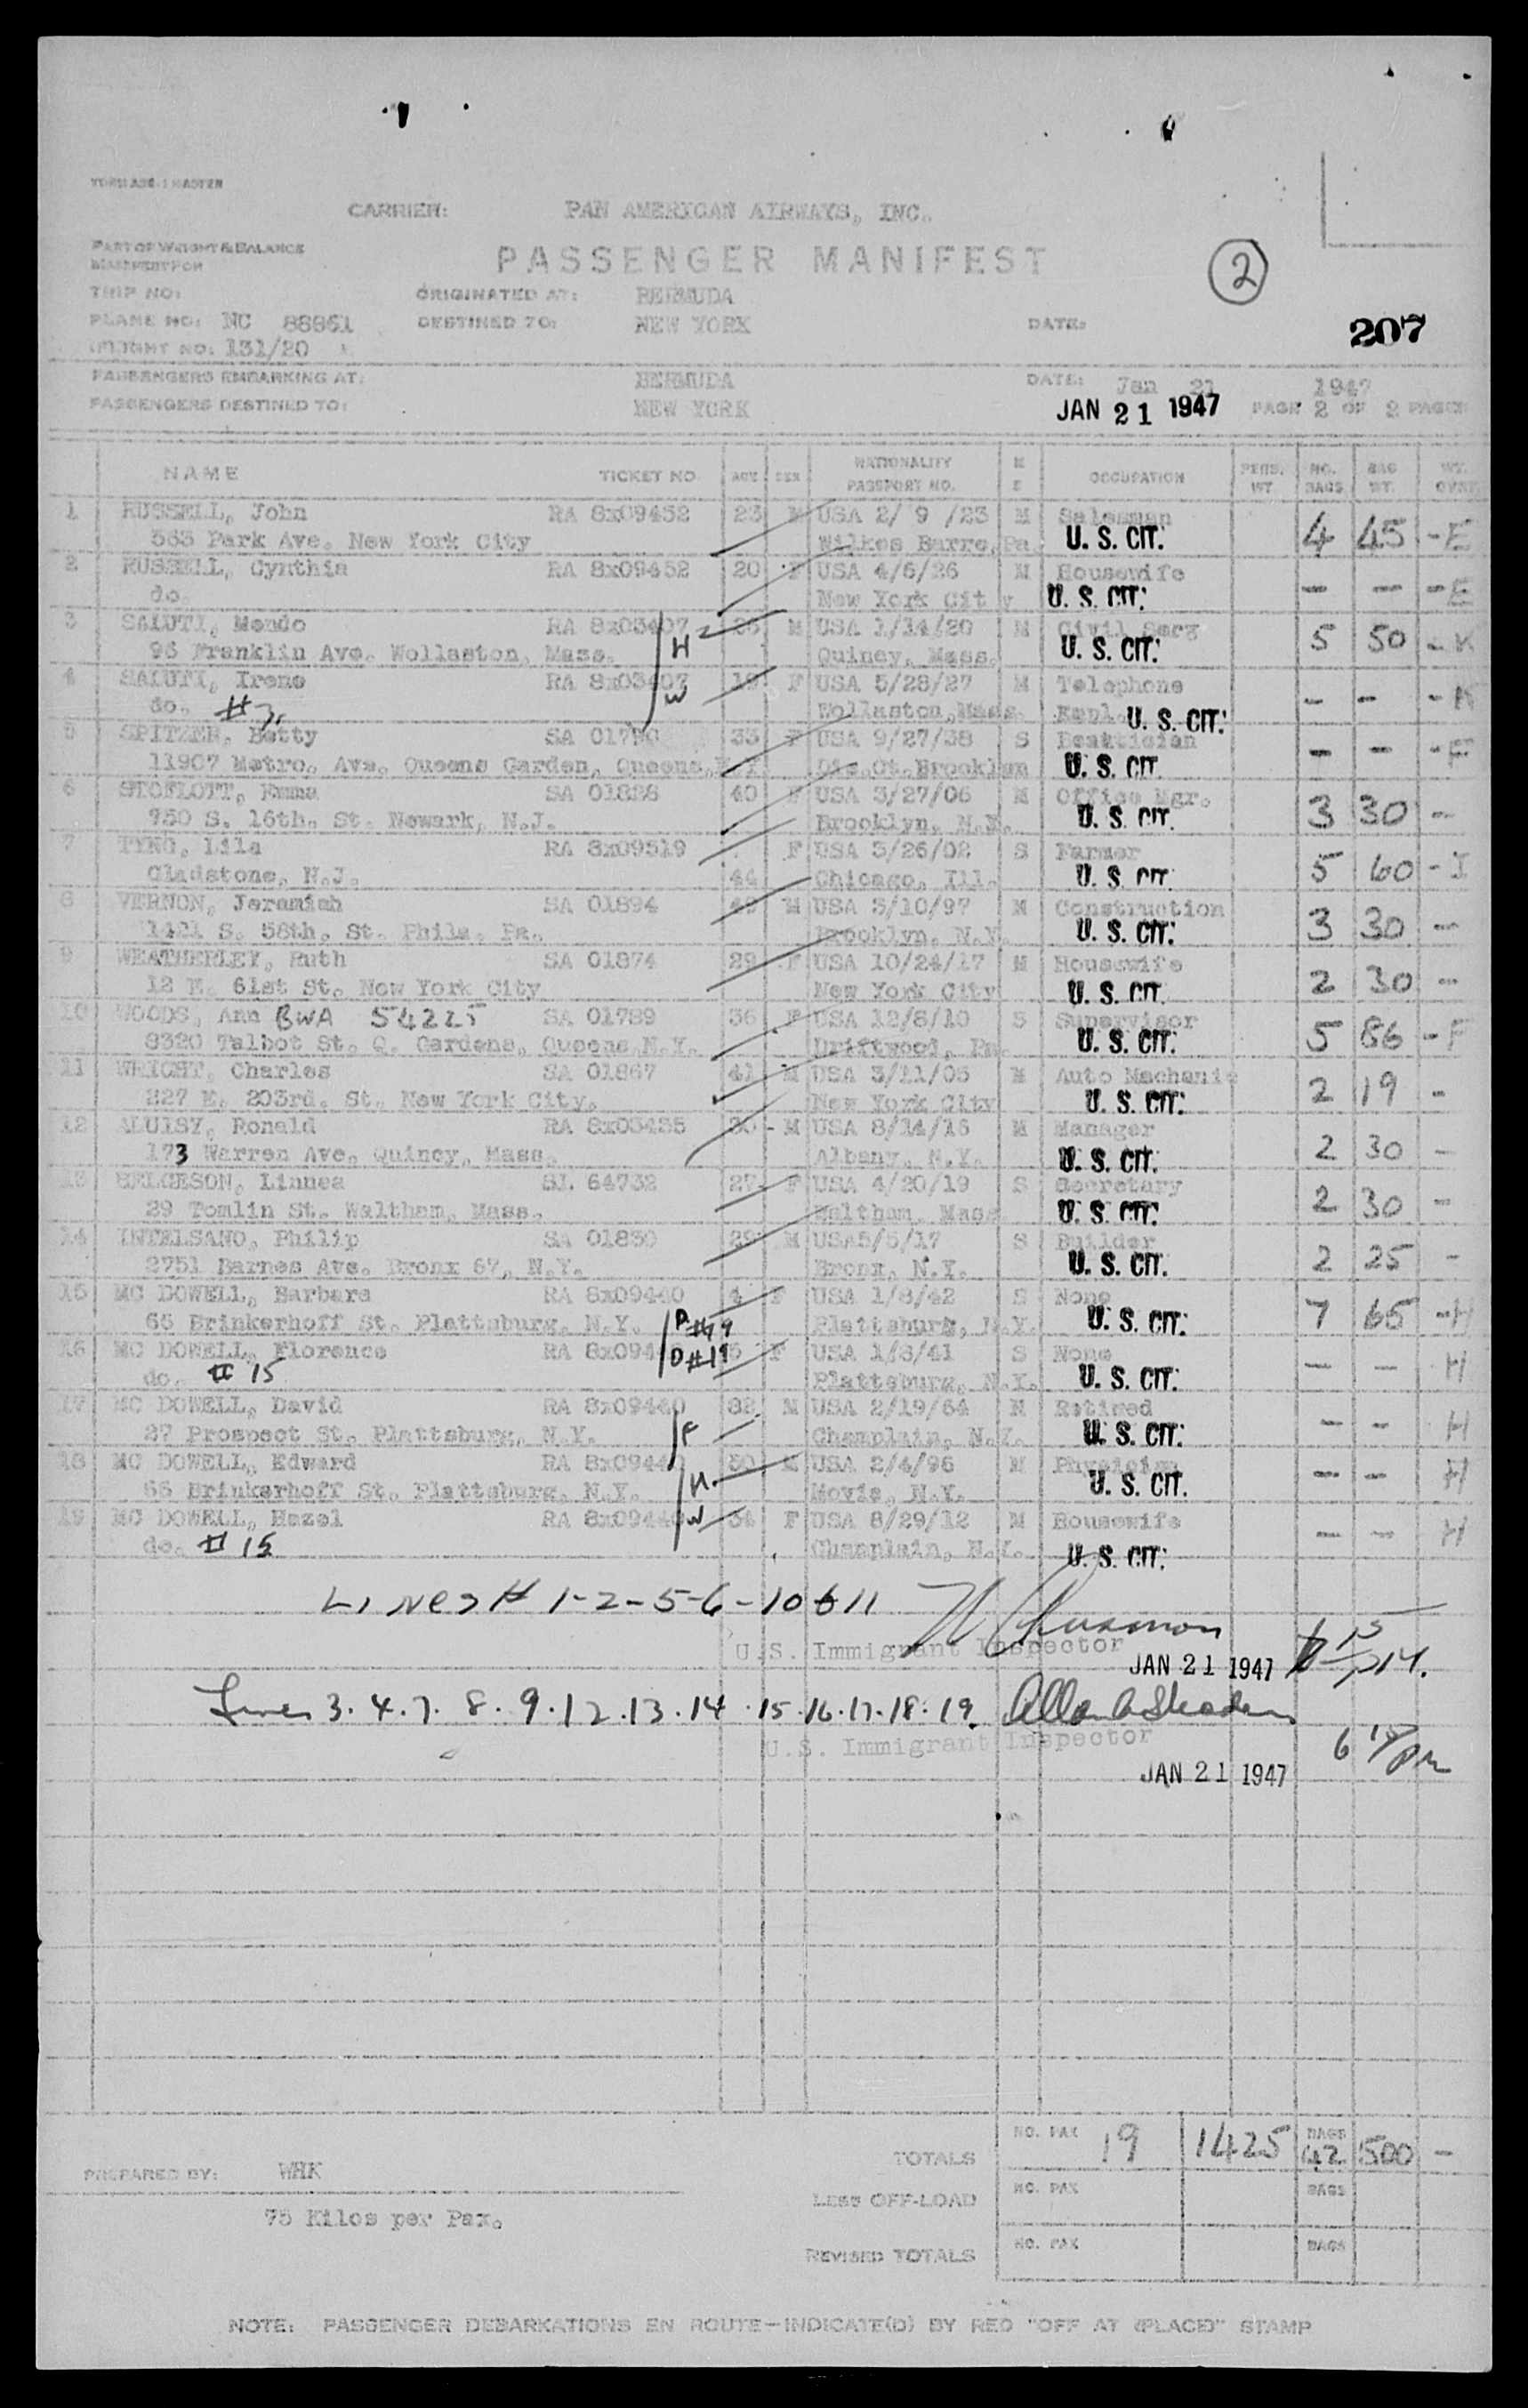 CARRIER: PAN AMERICAN AIRWAYS, INC.
PART OF WEIGHT & BALANCE
MANIFEST FOR
PASSENGER MANIFEST
2
TRIP NO: ORIGINATED AT: BERMUDA
PLANE NO: NC 88861 DESTINED TO: NEW YORK DATE: 207
FLIGHT NO: 131/20
PASSENGERS EMBARKING AT: BERMUDA DATE: Jan 21 1947
PASSENGERS DESTINED TO: NEW YORK JAN 21 1947 PAGE 2 OF 2 PAGES
NAME TICKET NO. AGE SEX NATIONALITY PASSPORT NO. M S OCCUPATION PERS. WT. NO. BAGS BAG WT. WT. OVER
1 RUSSELL, John RA 8x09452 23 M USA 2/ 9 /23 M Salesman 4 45 -E
563 Park Ave. New York City Wilkes Barre, Pa. U. S. CIT.
2 RUSSELL, Cynthia RA 8x09452 20 F USA 4/6/26 M Housewife - - -E
do. New York City U. S. CIT.
3 SALUTI, Mendo RA 8x03407 H 26 M USA 1/14/20 M Civil Serg 5 50 -K
96 Franklin Ave. Wollaston, Mass. Quincy, Mass. U. S. CIT.
4 SALUTI, Irene RA 8x03407 W 19 F USA 5/28/27 M Telephone - - -K
do. #3. Wollaston, Mass. Empl. U. S. CIT.
5 SPITZER, Betty SA 01790 33 F USA 9/27/38 S Beautician - - -F
11907 Metro. Ave. Queens Garden, Queens, N.Y. Dis.Ct.Brooklyn U. S. CIT
6 STOFLOTT, Emma SA 01828 40 F USA 3/27/06 M Office Mgr. 3 30 -
950 S. 16th. St. Newark, N.J. Brooklyn, N.Y. U. S. CIT.
7 TYNG, Lila RA 8x09519 F USA 3/26/02 S Farmer 5 60 -I
Gladstone, N.J. 44 Chicago, Ill. U. S. CIT.
8 VERNON, Jeramiah SA 01894 49 M USA 3/10/97 M Construction 3 30 -
1421 S. 58th. St. Phila. Pa. Brooklyn, N.Y. U. S. CIT.
9 WEATHERLEY, Ruth SA 01874 29 F USA 10/24/17 M Housewife 2 30 -
12 E. 61st St. New York City New York City U. S. CIT.
10 WOODS, Ann BWA 54225 SA 01789 36 F USA 12/8/10 S Supervisor 5 86 -F
8320 Talbot St. Q. Gardens, Queens, N.Y. Driftwood, Pa. U. S. CIT.
11 WRIGHT, Charles SA 01867 41 M USA 3/11/05 M Auto Machanic 2 19 -
227 E. 203rd. St. New York City. New York City U. S. CIT.
12 ALUISY, Ronald RA 8x03435 30 - M USA 8/14/16 M Manager 2 30 -
173 Warren Ave. Quincy, Mass. Albany, N.Y. U. S. CIT.
13 HELGESON, Linnea SI. 64732 27 F USA 4/20/19 S Secretary 2 30 -
29 Tomlin St. Waltham, Mass. Waltham, Mass U. S. CIT.
14 INTELSANO, Philip SA 01830 29 M USA5/5/17 S Builder 2 25 -
2751 Barnes Ave. Bronx 67, N.Y. Bronx, N.Y. U. S. CIT.
15 MC DOWELL, Barbara RA 8x09440 4 F USA 1/8/42 S None 7 65 -H
66 Brinkerhoff St. Plattsburg, N.Y. D #19 Plattsburg, N.Y. U. S. CIT.
16 MC DOWELL, Florence RA 8x0944 D #19 5 F USA 1/8/41 S None - - H
do. # 15 Plattsburg, N.Y. U. S. CIT.
17 MC DOWELL, David RA 8x09440 82 M USA 2/19/64 M Retired - - H
27 Prospect St. Plattsburg, N.Y. F Champlain, N.Y. U. S. CIT.
18 MC DOWELL, Edward RA 8x09440 50 M USA 2/4/96 M Physician - - H
66 Brinkerhoff St. Plattsburg, N.Y. H. Movie, N.Y. U. S. CIT.
19 MC DOWELL, Hazel RA 8x09440 W 34 F USA 8/29/12 M Housewife - - H
do. # 15 Champlain, N.Y. U. S. CIT.
Lines # 1-2-5-6-10 & 11
U.S. Immigrant Inspector JAN 21 1947
Lines 3. 4. 7. 8. 9. 12. 13. 14 . 15. 16. 17. 18. 19.
U.S. Immigrant Inspector 6 15 pm
JAN 21 1947
TOTALS NO. PAX 19 1425 BAGS 42 500 -
PREPARED BY: WHK
LESS OFF-LOAD NO. PAX BAGS
75 Kilos per Pax.
REVISED TOTALS NO. PAX BAGS
NOTE: PASSENGER DEBARKATIONS EN ROUTE—INDICATE(D) BY RED "OFF AT (PLACE)" STAMP